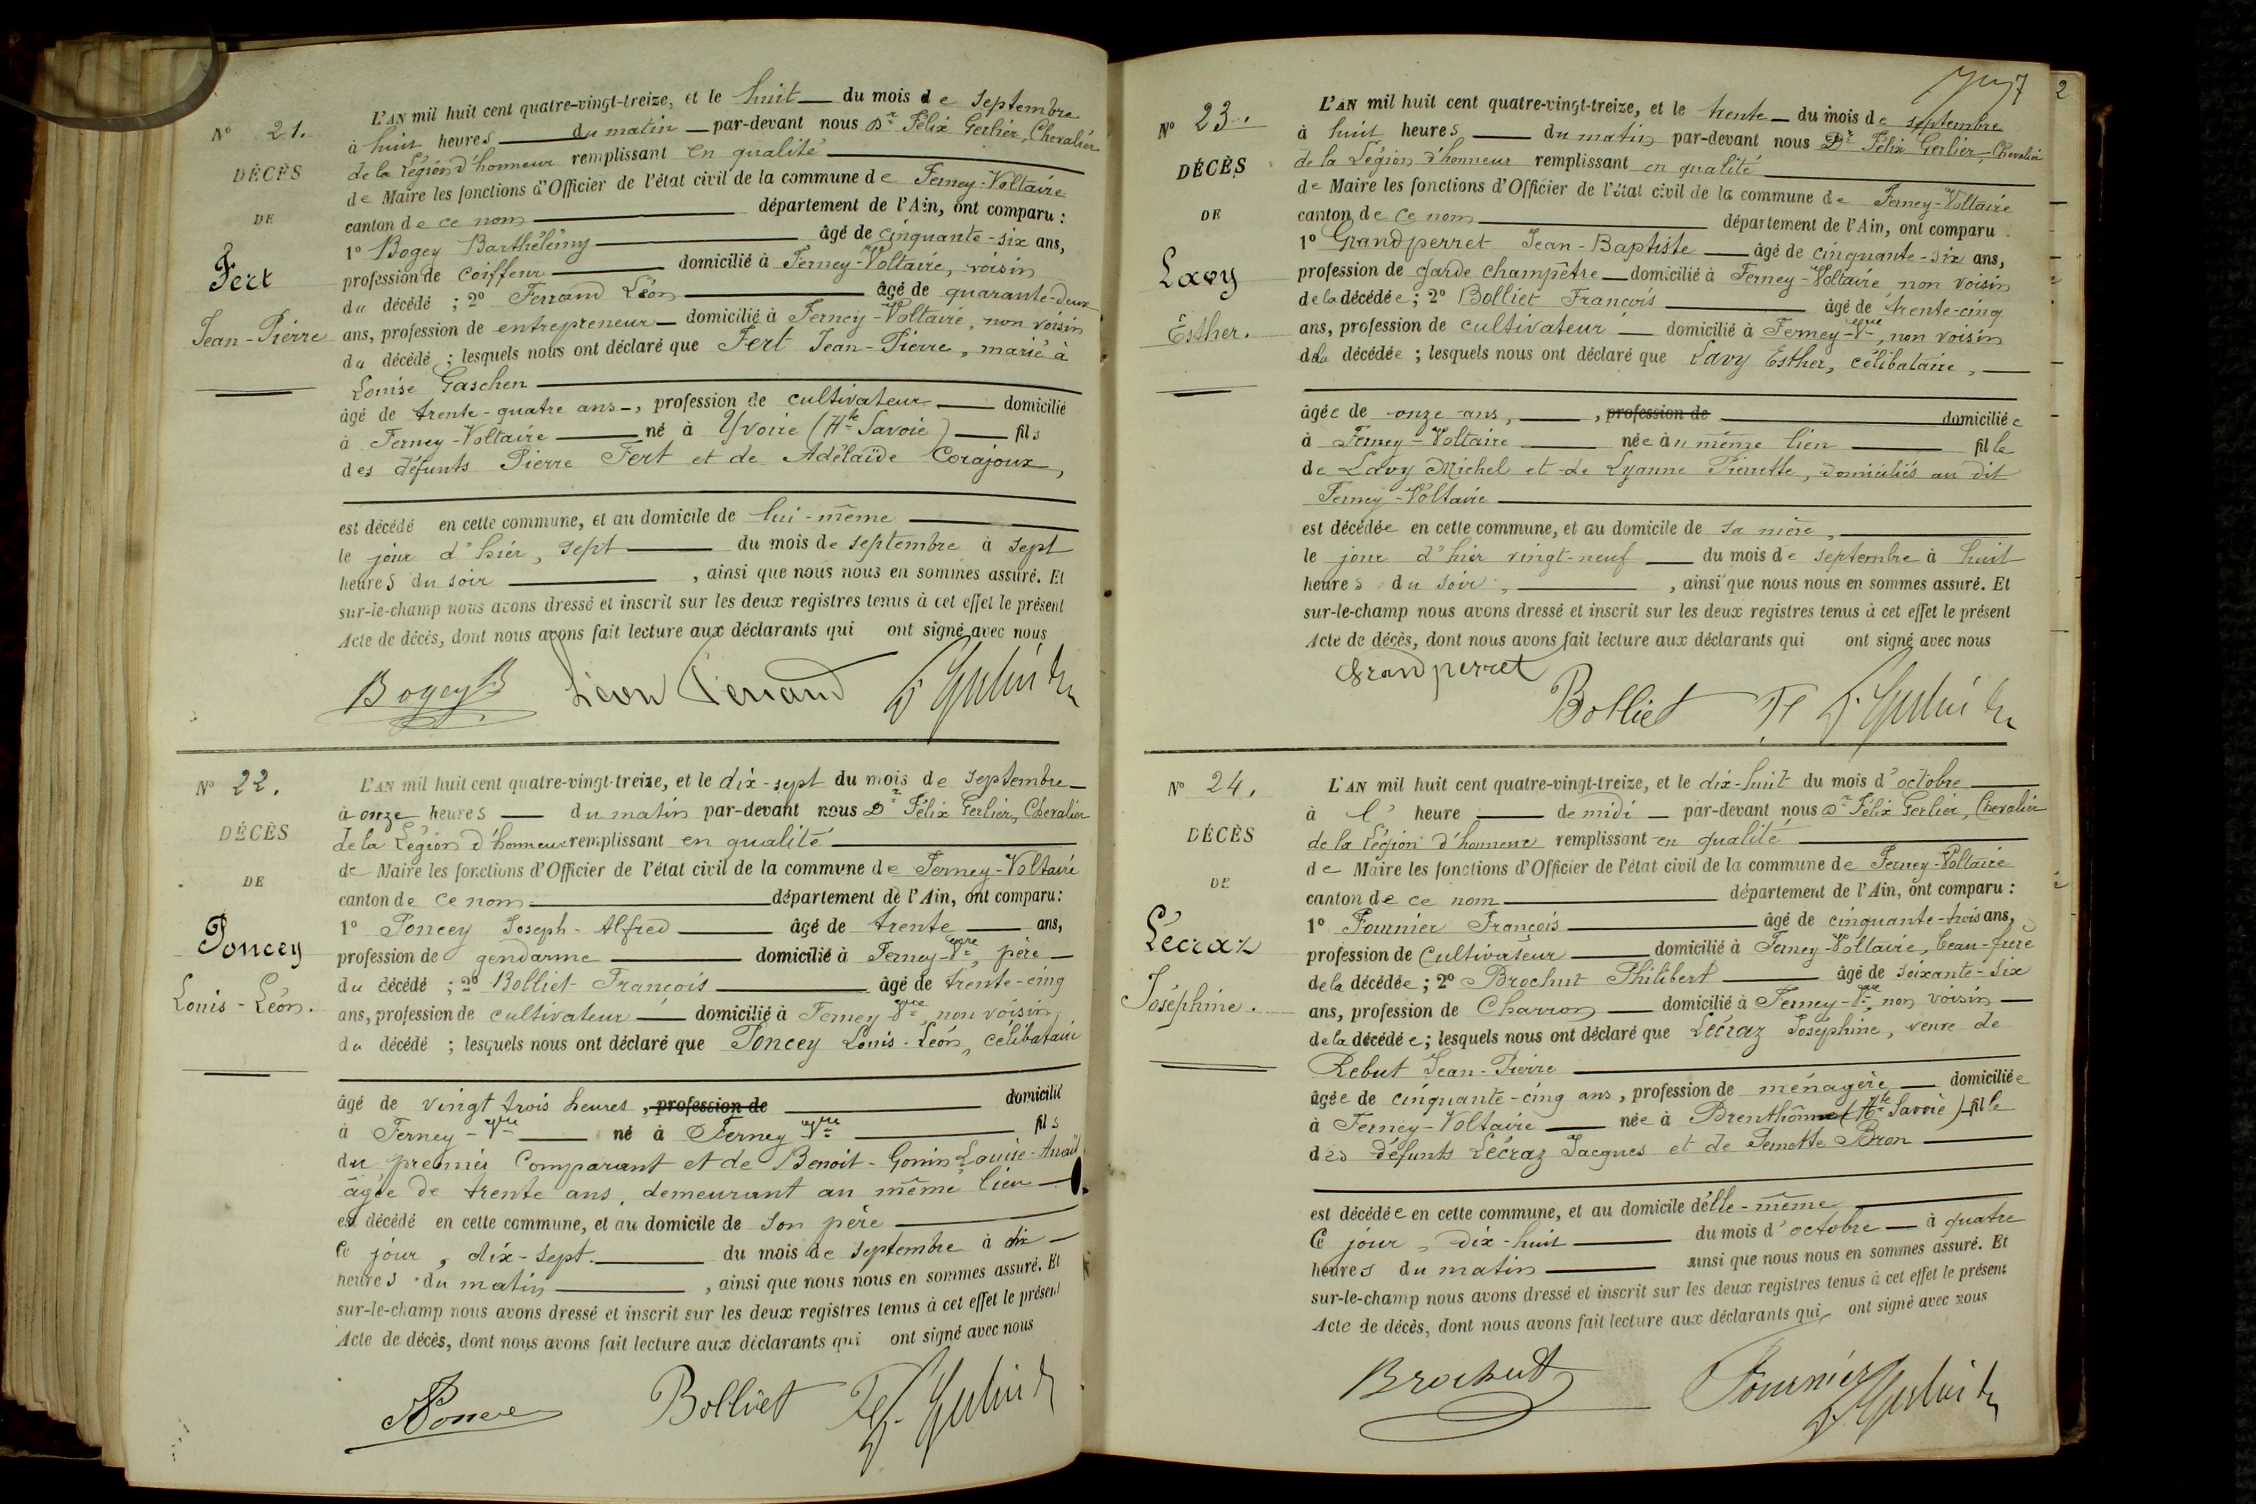 N° 21.
DÉCÈS
DE
Fert
Jean-Pierre
L'AN mil huit cent quatre-vingt-treize, et le huit du mois de septembre
à huit heures du matin par-devant nous Dr Félix Gerlier, Chevalier
de la Légion d'honneur remplissant en qualité
de Maire les fonctions d'Officier de l'état civil de la commune de Ferney-Voltaire
canton de ce nom département de l'Ain, ont comparu :
1° Bogey Barthélemy âgé de cinquante-six ans,
profession de coiffeur domicilié à Ferney-Voltaire, voisin
du décédé ; 2° Ferrand Léon âgé de quarante-deux
ans, profession de entrepreneur domicilié à Ferney-Voltaire, non voisin
du décédé ; lesquels nous ont déclaré que Fert Jean-Pierre, marié à
Louise Gaschen
âgé de trente-quatre ans, profession de cultivateur domicilié
à Ferney-Voltaire né à Yvoire (Hte Savoie) fils
des défunts Pierre Fert et de Adélaïde Corajoux,
est décédé en cette commune, et au domicile de lui-même
le jour d'hier, sept du mois de septembre à sept
heures du soir , ainsi que nous nous en sommes assuré. Et
sur-le-champ nous avons dressé et inscrit sur les deux registres tenus à cet effet le présent
Acte de décès, dont nous avons fait lecture aux déclarants qui ont signé avec nous
Bogey B Léon Ferrand F. Gerlier Dr
N° 22.
DÉCÈS
DE
Poncey
Louis-Léon.
L'AN mil huit cent quatre-vingt-treize, et le dix-sept du mois de septembre
à onze heures du matin par-devant nous Dr Félix Gerlier, Chevalier
de la Légion d'honneur remplissant en qualité
de Maire les fonctions d'Officier de l'état civil de la commune de Ferney-Voltaire
canton de ce nom département de l'Ain, ont comparu :
1° Poncey Joseph-Alfred âgé de trente ans,
profession de gendarme domicilié à Ferney-Vre, père
du décédé ; 2° Bolliet François âgé de trente-cinq
ans, profession de cultivateur domicilié à Ferney-Vre, non voisin
du décédé ; lesquels nous ont déclaré que Poncey Louis-Léon, célibataire
âgé de vingt trois heures, profession de domicilié
à Ferney-Vre né à Ferney-Vre fils
du premier comparant et de Benoit-Gonin Louise-
âgée de trente ans, demeurant au même lieu
est décédé en cette commune, et au domicile de son père
ce jour, dix-sept du mois de septembre à dix
heures du matin , ainsi que nous nous en sommes assuré. Et
sur-le-champ nous avons dressé et inscrit sur les deux registres tenus à cet effet le présent
Acte de décès, dont nous avons fait lecture aux déclarants qui ont signé avec nous
Bolliet F. Gerlier Dr
2
N° 23.
DÉCÈS
DE
Lavy
Esther.
L'AN mil huit cent quatre-vingt-treize, et le trente du mois de septembre
à huit heures du matin par-devant nous Dr Félix Gerlier, Chevalier
de la Légion d'honneur remplissant en qualité
de Maire les fonctions d'Officier de l'état civil de la commune de Ferney-Voltaire
canton de ce nom département de l'Ain, ont comparu :
1° Grandperret Jean-Baptiste âgé de cinquante-six ans,
profession de garde champêtre domicilié à Ferney-Voltaire non voisin
de la décédée ; 2° Bolliet François âgé de trente-cinq
ans, profession de cultivateur domicilié à Ferney-Vre, non voisin
de la décédée ; lesquels nous ont déclaré que Lavy Esther, célibataire,
âgée de onze ans, , profession de domiciliée
à Ferney-Voltaire née au même lieu fille
de Lavy Michel et de Lyanne Pierrette, domiciliés au dit
Ferney-Voltaire
est décédée en cette commune, et au domicile de sa mère,
le jour d'hier vingt-neuf du mois de septembre à huit
heures du soir, , ainsi que nous nous en sommes assuré. Et
sur-le-champ nous avons dressé et inscrit sur les deux registres tenus à cet effet le présent
Acte de décès, dont nous avons fait lecture aux déclarants qui ont signé avec nous
Grandperret
Bolliet F. Gerlier Dr
N° 24.
DÉCÈS
DE
Lécraz
Joséphine.
L'AN mil huit cent quatre-vingt-treize, et le dix-huit du mois d'octobre
à l' heure de midi par-devant nous Dr Félix Gerlier, Chevalier
de la Légion d'honneur remplissant en qualité
de Maire les fonctions d'Officier de l'état civil de la commune de Ferney-Voltaire
canton de ce nom département de l'Ain, ont comparu :
1° Fournier François âgé de cinquante-trois ans,
profession de cultivateur domicilié à Ferney-Voltaire, beau-frère
de la décédée ; 2° Brochut Philibert âgé de soixante-six
ans, profession de Charron domicilié à Ferney-Vre, non voisin
de la décédée ; lesquels nous ont déclaré que Lécraz Joséphine, veuve de
Rebut Jean-Pierre
âgée de cinquante-cinq ans, profession de ménagère domiciliée
à Ferney-Voltaire née à Brenthonne (Hte Savoie) fille
des défunts Lécraz Jacques et de Pernette Bron
est décédée en cette commune, et au domicile d'elle-même
ce jour, dix-huit du mois d'octobre à quatre
heures du matin ainsi que nous nous en sommes assuré. Et
sur-le-champ nous avons dressé et inscrit sur les deux registres tenus à cet effet le présent
Acte de décès, dont nous avons fait lecture aux déclarants qui ont signé avec nous
Brochut Fournier F. Gerlier Dr